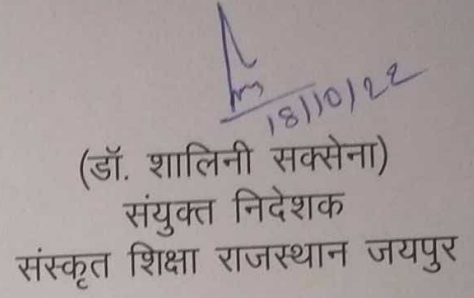 18/10/22
(डॉ. शालिनी सक्सेना)
संयुक्त निदेशक
संस्कृत शिक्षा राजस्थान जयपुर